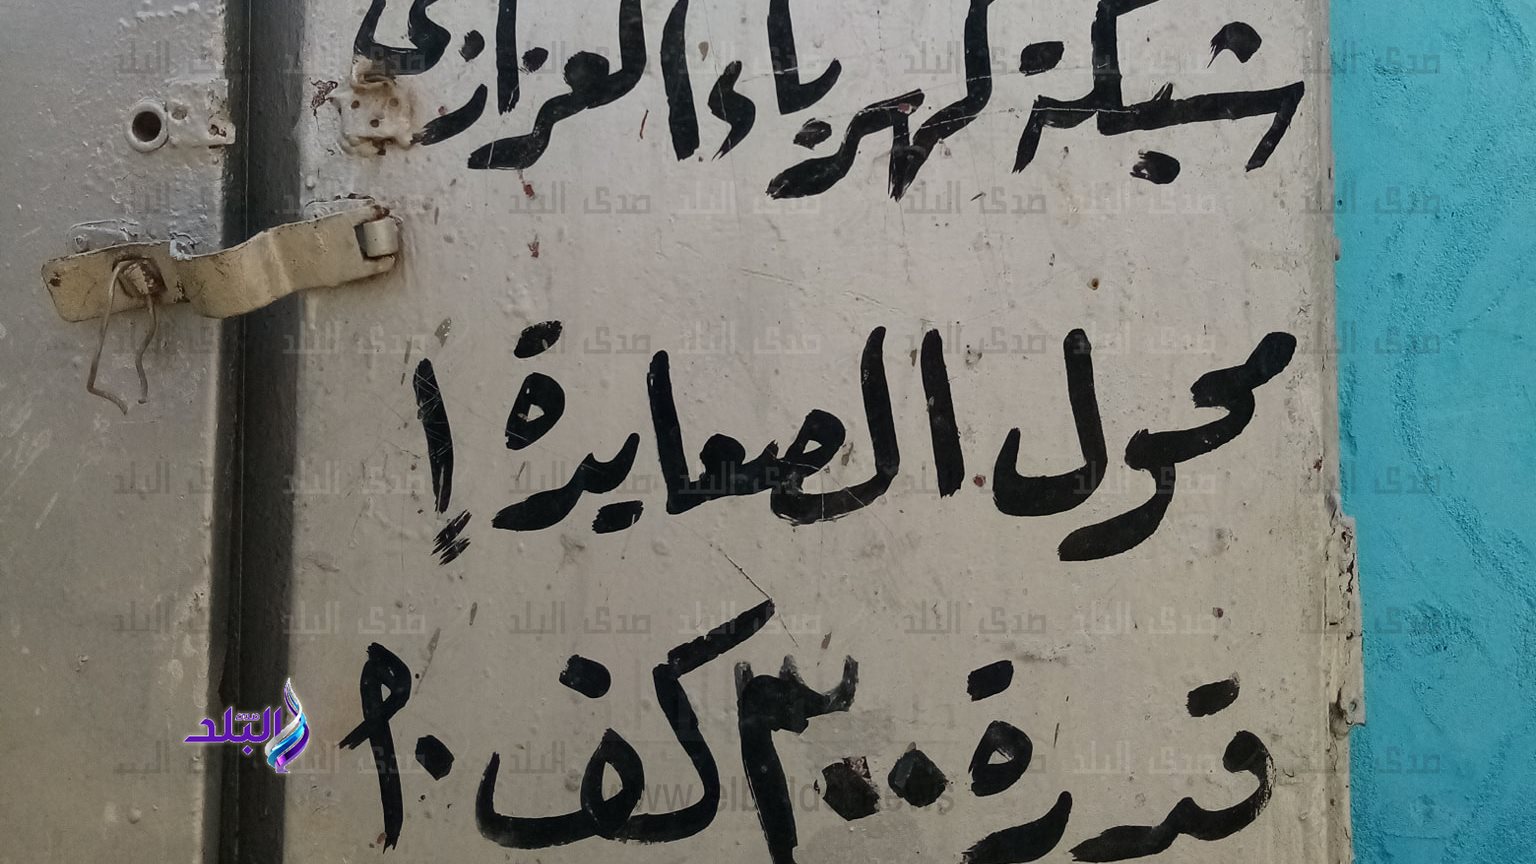 شبكة كهرباء العزازي
محول الصعايدة ١
قدرة ٣٠٠ كف . م
صدى البلد
www.elbalad.news